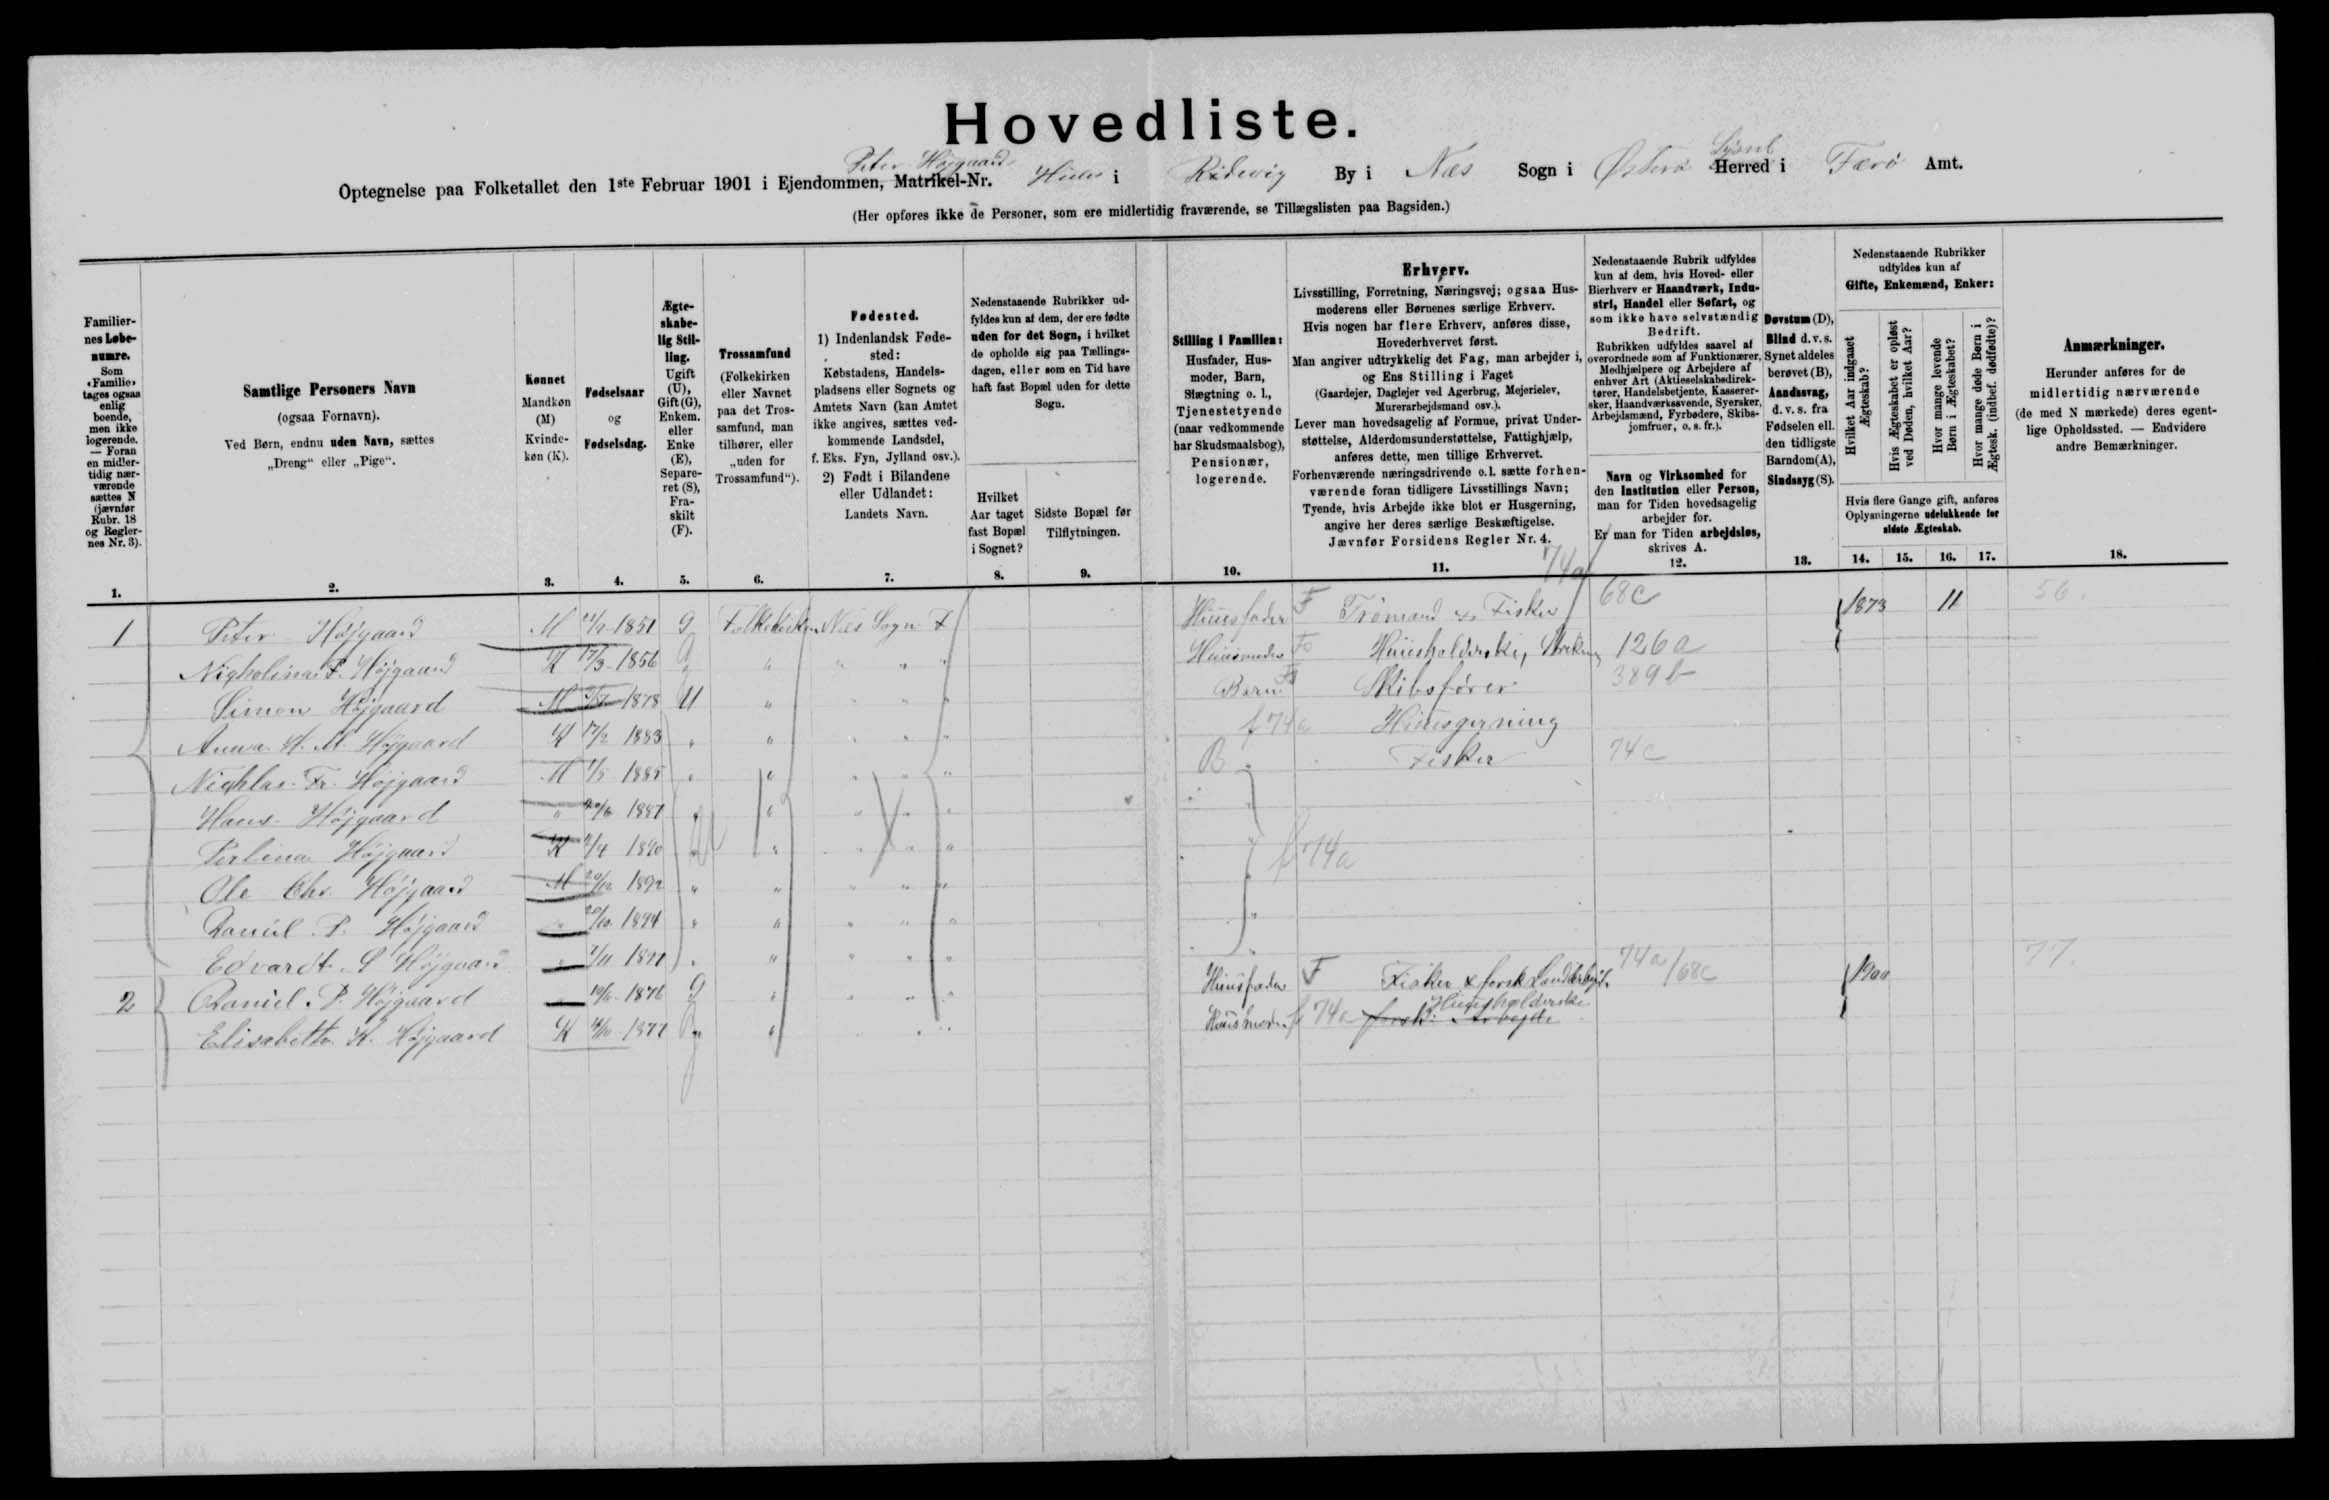 Hovedliste.
Peter Højgaard
Optegnelse paa Folketallet den 1ste Februar 1901 i Ejendommen, Matrikel-Nr. Huus i Ridevig By i Næs Sogn i Østerø Syssel Herred i Færø Amt.
(Her opføres ikke de Personer, som ere midlertidig fraværende, se Tillægslisten paa Bagsiden.)
Familiernes Løbenumre.
Som «Familie» tages ogsaa enlig boende, men ikke logerende. — Foran en midlertidig nærværende sættes N (jævnfør Rubr. 18 og Reglernes Nr. 3).
Samtlige Personers Navn
(ogsaa Fornavn).
Ved Børn, endnu uden Navn, sættes
„Dreng“ eller „Pige“.
Kønnet
Mandkøn (M)
Kvindekøn (K).
Fødselsaar
og
Fødselsdag.
Ægteskabelig Stilling.
Ugift (U), Gift (G), Enkem. eller Enke (E), Separeret (S), Fraskilt (F).
Trossamfund
(Folkekirken eller Navnet paa det Trossamfund, man tilhører, eller „uden for Trossamfund“).
Fødested.
1) Indenlandsk Fødested:
Købstadens, Handelspladsens eller Sognets og Amtets Navn (kan Amtet ikke angives, sættes vedkommende Landsdel, f. Eks. Fyn, Jylland osv.).
2) Født i Bilandene eller Udlandet:
Landets Navn.
Nedenstaaende Rubrikker udfyldes kun af dem, der ere fødte uden for det Sogn, i hvilket de opholde sig paa Tællingsdagen, eller som en Tid have haft fast Bopæl uden for dette Sogn.
Hvilket Aar taget fast Bopæl i Sognet?
Sidste Bopæl før Tilflytningen.
Stilling i Familien:
Husfader, Husmoder, Barn, Slægtning o. l., Tjenestetyende (naar vedkommende har Skudsmaalsbog), Pensionær, logerende.
Erhverv.
Livsstilling, Forretning, Næringsvej; ogsaa Husmoderens eller Børnenes særlige Erhverv.
Hvis nogen har flere Erhverv, anføres disse, Hovederhvervet først.
Man angiver udtrykkelig det Fag, man arbejder i, og Ens Stilling i Faget
(Gaardejer, Daglejer ved Agerbrug, Mejerielev, Murerarbejdsmand osv.).
Lever man hovedsagelig af Formue, privat Understøttelse, Alderdomsunderstøttelse, Fattighjælp, anføres dette, men tillige Erhvervet.
Forhenværende næringsdrivende o.l. sætte forhenværende foran tidligere Livsstillings Navn;
Tyende, hvis Arbejde ikke blot er Husgerning, angive her deres særlige Beskæftigelse.
Jævnfør Forsidens Regler Nr. 4.
Nedenstaaende Rubrik udfyldes kun af dem, hvis Hoved- eller Bierhverv er Haandværk, Industri, Handel eller Søfart, og som ikke have selvstændig Bedrift.
Rubrikken udfyldes saavel af overordnede som af Funktionærer, Medhjælpere og Arbejdere af enhver Art (Aktieselskabsdirektører, Handelsbetjente, Kasserersker, Haandværkssvende, Syersker, Arbejdsmænd, Fyrbødere, Skibsjomfruer, o. s. fr.).
Navn og Virksomhed for den Institution eller Person, man for Tiden hovedsagelig arbejder for.
Er man for Tiden arbejdsløs, skrives A.
Døvstum (D), Blind d. v. s. Synet aldeles berøvet (B), Aandssvag, d. v. s. fra Fødselen ell. den tidligste Barndom (A), Sindssyg (S).
Nedenstaaende Rubrikker udfyldes kun af
Gifte, Enkemænd, Enker:
Hvilket Aar indgaaet Ægteskab?
Hvis Ægteskabet er opløst ved Døden, hvilket Aar?
Hvor mange levende Børn i Ægteskabet?
Hvor mange døde Børn i Ægtesk. (indbef. dødfødte)?
Hvis flere Gange gift, anføres Oplysningerne udelukkende for sidste Ægteskab.
Anmærkninger.
Herunder anføres for de midlertidig nærværende (de med N mærkede) deres egentlige Opholdssted. — Endvidere andre Bemærkninger.
1. 2. 3. 4. 5. 6. 7. 8. 9. 10. 11. 12. 13. 14. 15. 16. 17. 18.
74a
1 Peter Højgaard M 1851 G Folkekirken Næs Sogn Huusfader F Fisker 68c 1873 11 56.
Nicholina P. Højgaard K 17/3 1856 G " " " " Huusmoder Huusholderske, 126a
Simon Højgaard M 1878 U " " " " Barn Skibsfører 389b
Anna H. M. Højgaard K 17/2 1883 " " " " " f 74a Huusgerning
Nichlas Fr. Højgaard M 1/5 1885 " " " " " B " Fisker 74c
Hans Højgaard " 1887 " " " " "
Perlina Højgaard K /4 1890 " " " " " f 74a
Ole Chr. Højgaard M 20/12 1892 " " " " "
Daniel P. Højgaard " 20/10 1894 " " " " "
Edvardt S Højgaard " /11 1897 " " " " "
2 Daniel. P. Højgaard " 19/6 1876 G " " " " Huusfader F Fisker & forsk Landarbejd. 74a/68c 1900 77.
Elisabeth K. Højgaard K /10 1877 " " " " Huusmoder f 74a forsk: Arbejde Huusholderske